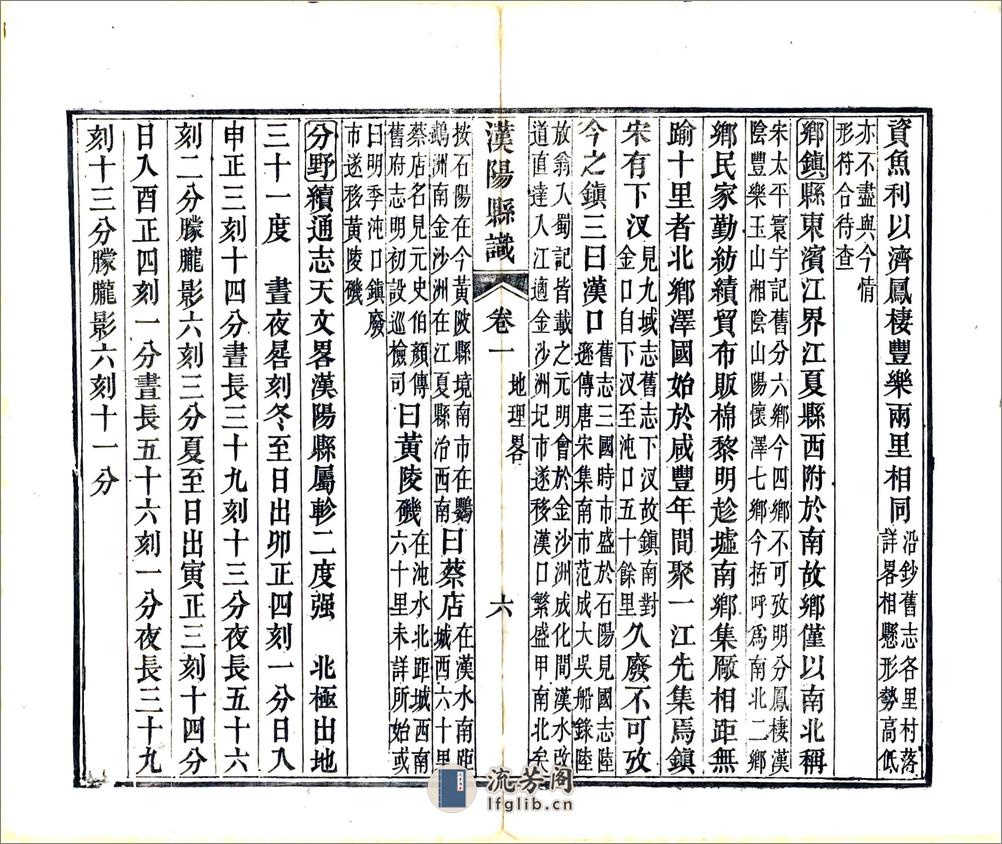 資魚利以濟鳳棲豐樂兩里相同
沿鈔舊志各里村落
詳畧相懸形勢高低
亦不盡與今情
形符合待查
鄉鎮縣東濱江界江夏縣西附於南故鄉僅以南北稱
宋太平寰宇記舊分六鄉今四鄉不可攷明分鳳棲漢
陰豐樂玉山湘陰山陽懷澤七鄉今括呼爲南北二鄉
鄉民家勤紡績貿布販棉黎明趁墟南鄉集廠相距無
踰十里者北鄉澤國始於咸豐年間聚一江先集焉鎮
宋有下汊
見九域志舊志下汊故鎮南對
金口自下汊至沌口五十餘里
久廢不可攷
今之鎮三曰漢口
舊志三國時市盛於石陽見國志陸
遜傳唐宋集南市范成大吳船錄陸
放翁入蜀記皆載之元明會於金沙洲成化間漢水改
道直達入江適金沙洲圮市遂移漢口繁盛甲南北矣
漢陽縣識 卷一 地理畧 六
按石陽在今黃陂縣境南市在鸚
鵡洲南金沙洲在江夏縣治西南
曰蔡店
在漢水南距
城西六十里
蔡店名見元史伯顏傳
舊府志明初設巡檢司
曰黃陵磯
在沌水北距城西南
六十里未詳所始或
曰明季沌口鎮廢
市遂移黃陵磯
分野續通志天文畧漢陽縣屬軫二度强 北極出地
三十一度 晝夜晷刻冬至日出卯正四刻一分日入
申正三刻十四分晝長三十九刻十三分夜長五十六
刻二分朦朧影六刻三分夏至日出寅正三刻十四分
日入酉正四刻一分晝長五十六刻一分夜長三十九
刻十三分朦朧影六刻十一分
流芳阁
lfglib.cn